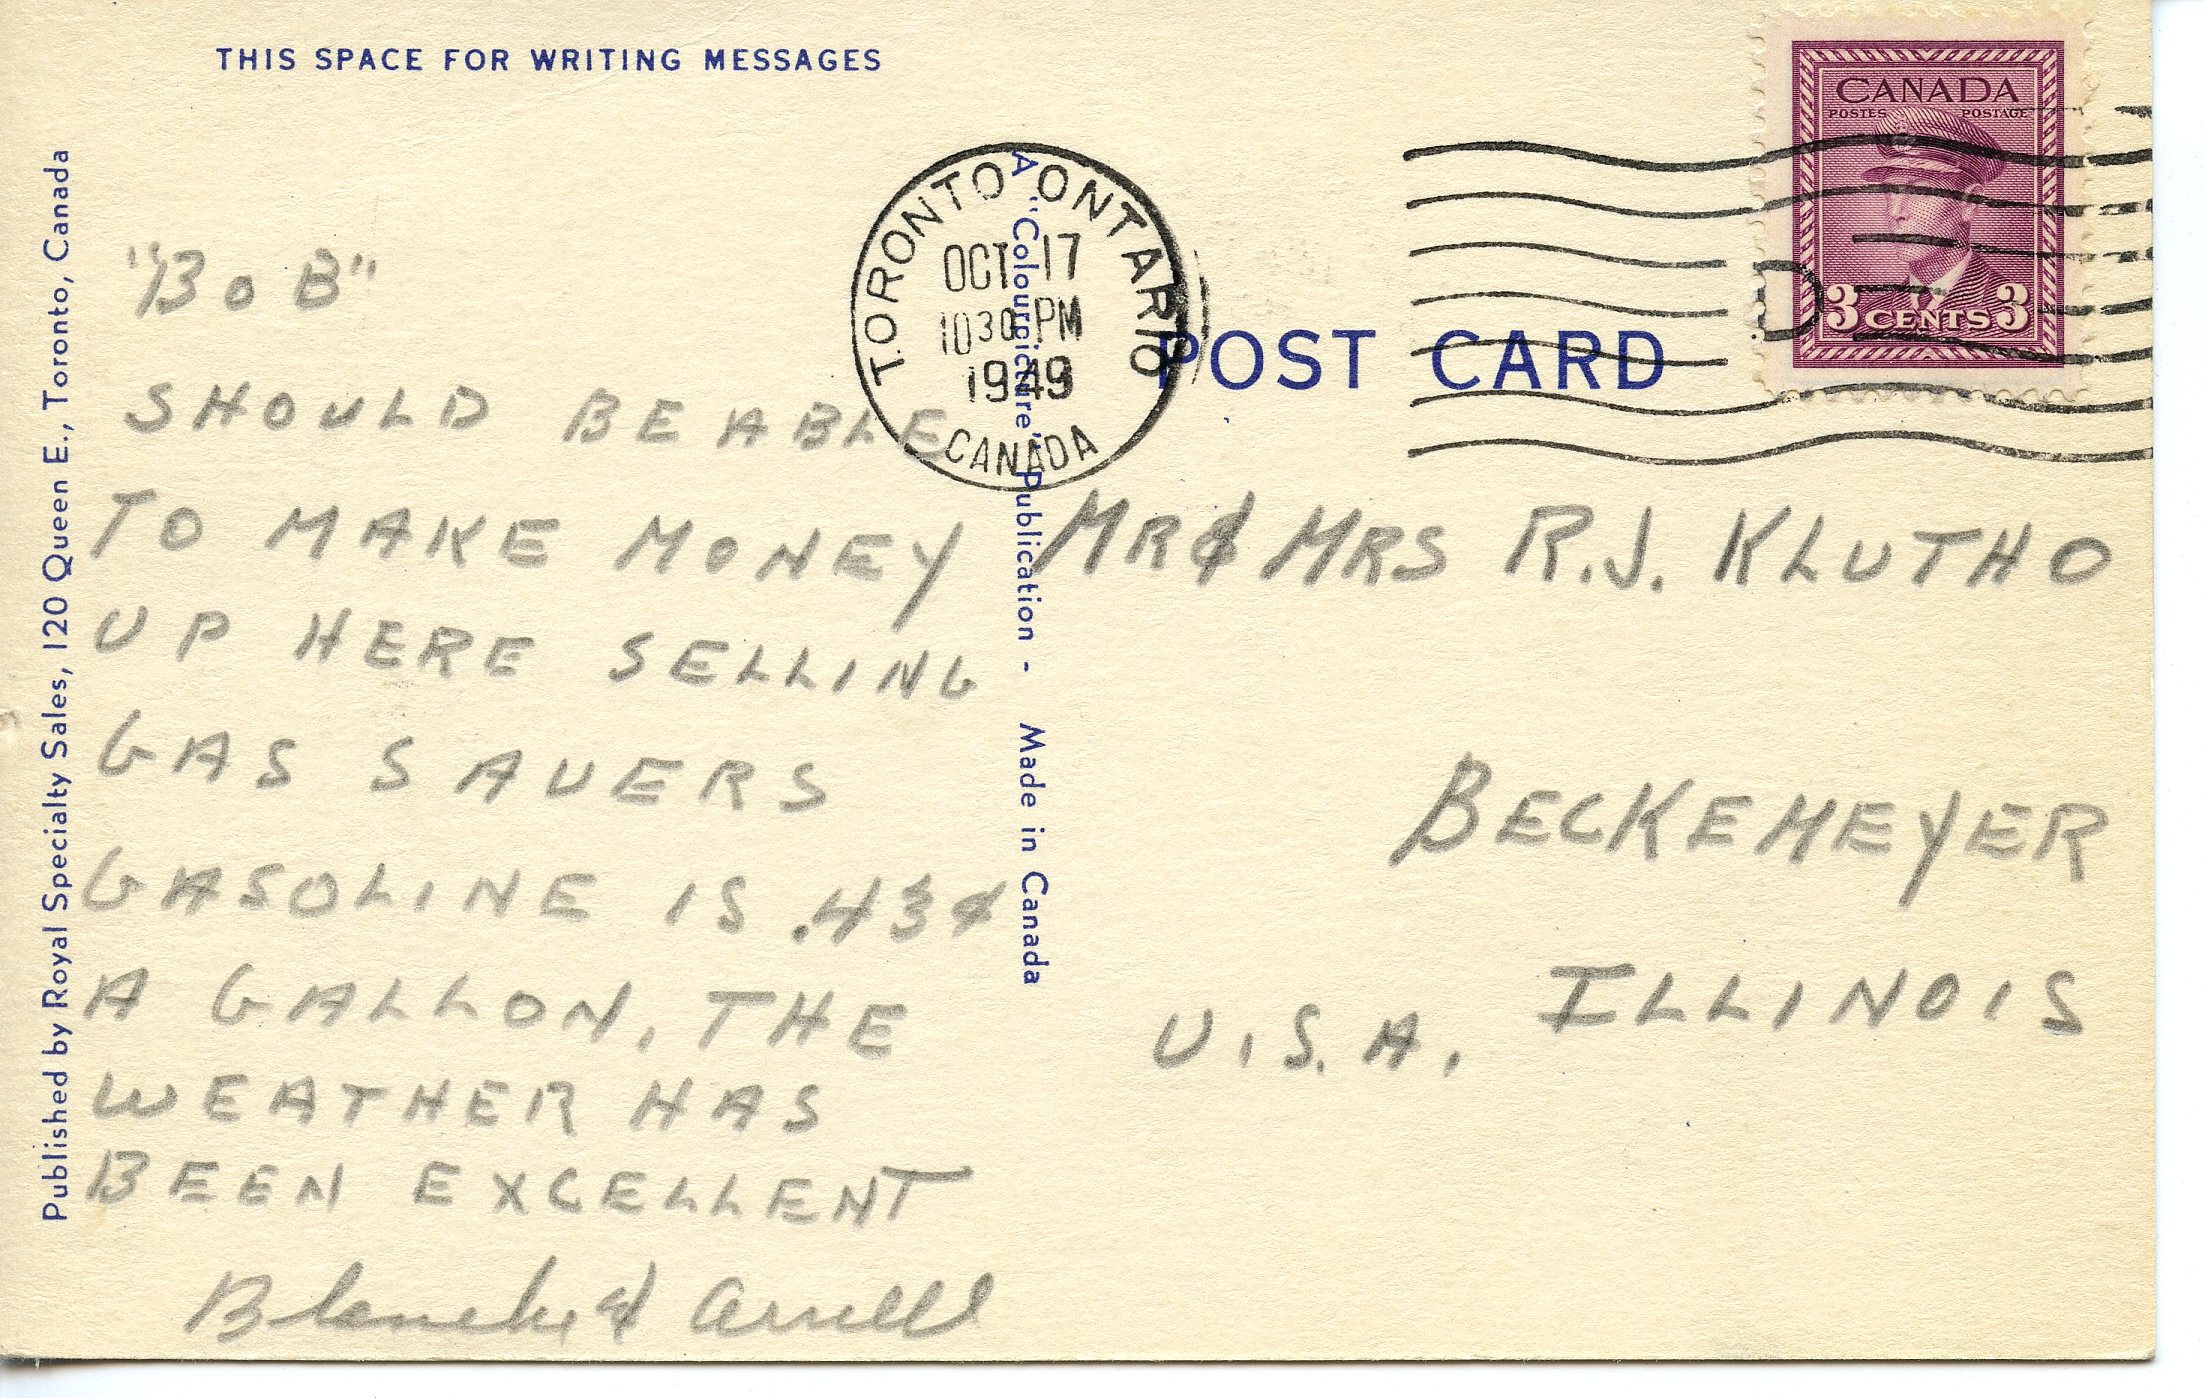 THIS SPACE FOR WRITING MESSAGES
Published by Royal Specialty Sales, 120 Queen E., Toronto, Canada
"BOB"
SHOULD BE ABLE
TO MAKE MONEY
UP HERE SELLING
GAS SAVERS
GASOLINE IS .43¢
A GALLON, THE
WEATHER HAS
BEEN EXCELLENT
Blanche &
A "Colourpicture" Publication - Made in Canada
TORONTO ONTARIO
OCT 17
1030 PM
1949
CANADA
CANADA
POSTES POSTAGE
3 CENTS 3
POST CARD
MR & MRS R.J. KLUTHO
BECKEMEYER
ILLINOIS
U.S.A.